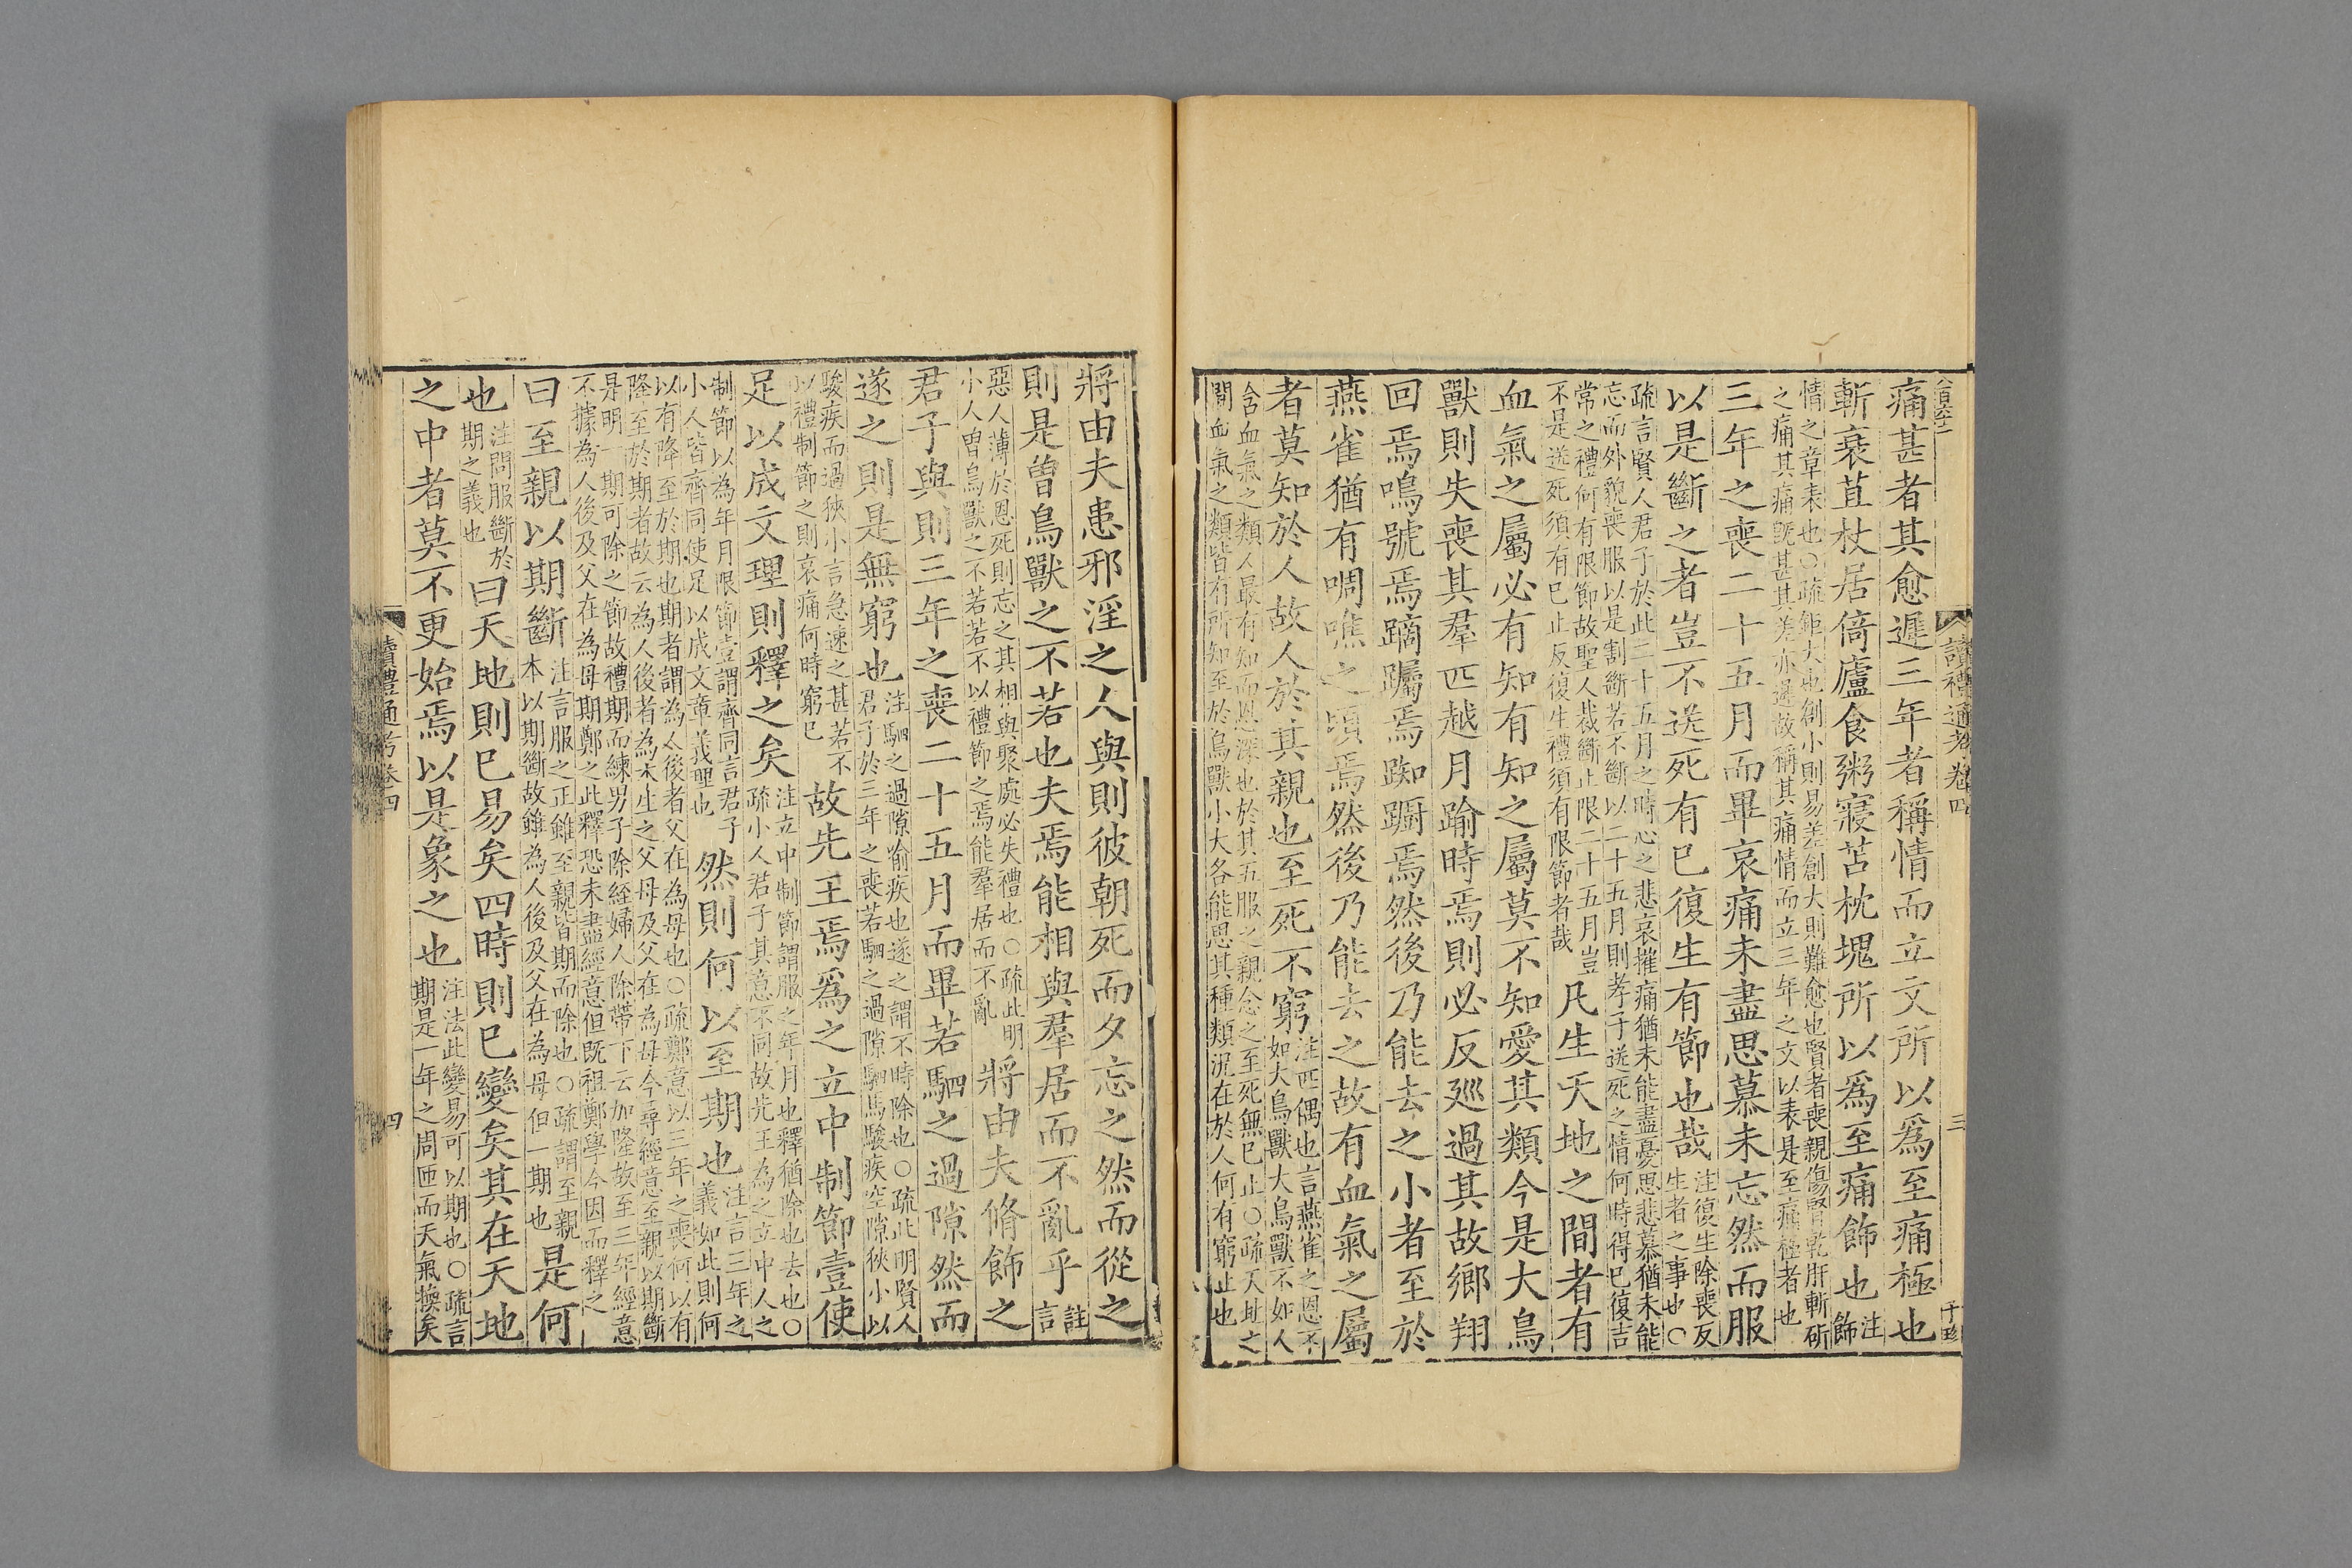 讀禮通考卷四
三
痛甚者其愈遲三年者稱情而立文所以爲至痛極也
斬衰苴杖居倚廬食粥寢苫枕塊所以爲至痛飾也注飾
情之章表也○疏鉅大也創小則易差創大則難愈也賢者喪親傷腎乾肝斬斫
之痛其痛旣甚其差亦遲故稱其痛情而立三年之文以表是至痛極者也
三年之喪二十五月而畢哀痛未盡思慕未忘然而服
以是斷之者豈不送死有巳復生有節也哉注復生除喪反生者之事也○
疏言賢人君子於此二十五月之時心之悲哀摧痛猶未能盡憂思悲慕猶未能
忘而外貌喪服以是割斷若不斷以二十五月則孝子送死之情何時得巳復吉
常之禮何有限節故聖人裁斷止限二十五月豈
不是送死須有巳止反復生禮須有限節者哉
凡生天地之間者有
血氣之屬必有知有知之屬莫不知愛其類今是大鳥
獸則失喪其羣匹越月踰時焉則必反廵過其故鄉翔
回焉鳴號焉蹢躅焉踟躕焉然後乃能去之小者至於
燕雀猶有啁噍之頃焉然後乃能去之故有血氣之屬
者莫知於人故人於其親也至死不窮注匹偶也言燕雀之恩不如大鳥獸大鳥獸不如人
含血氣之類人最有知而恩深也於其五服之親念之至死無巳止○疏天地之
間血氣之類皆有所知至於鳥獸小大各能思其種類況在於人何有窮止也
將由夫患邪淫之人與則彼朝死而夕忘之然而從之
則是曾鳥獸之不若也夫焉能相與羣居而不亂乎註言
惡人薄於恩死則忘之其相與聚處必失禮也○疏此明
小人曾鳥獸之不若若不以禮節之焉能羣居而不亂
將由夫脩飾之
君子與則三年之喪二十五月而畢若駟之過隙然而
遂之則是無窮也注駟之過隙喻疾也遂之謂不時除也○疏此明賢人君子於三年之喪若駟之過隙駟馬駿疾空隙狹小以
駿疾而過狹小言急速之甚若不
以禮制節之則哀痛何時窮巳
故先王焉爲之立中制節壹使
足以成文理則釋之矣注立中制節謂服之年月也釋猶除也去也○疏小人君子其意不同故先王為之立中人之
制節以為年月限節壹謂齊同言君子
小人皆齊同使足以成文章義理也
然則何以至期也注言三年之義如此則何
以有降至於期也期者謂為人後者父在為母也○疏鄭意以三年之喪何以有
降至於期者故云為人後者為本生之父母及父在為母今尋經意至親以期斷
是明一期可除之節故禮期而練男子除絰婦人除帶下云加隆故至三年經意
不據為人後及父在為母期鄭之此釋恐未盡經意但既祖鄭學今因而釋之
曰至親以期斷注言服之正雖至親皆期而除也○疏謂至親本以期斷故雖為人後及父在為母但一期也是何
也注問服斷於期之義也曰天地則巳易矣四時則巳變矣其在天地
之中者莫不更始焉以是象之也注法此變易可以期也○疏言期是一年之周匝而天氣換矣
讀禮通考卷四
四